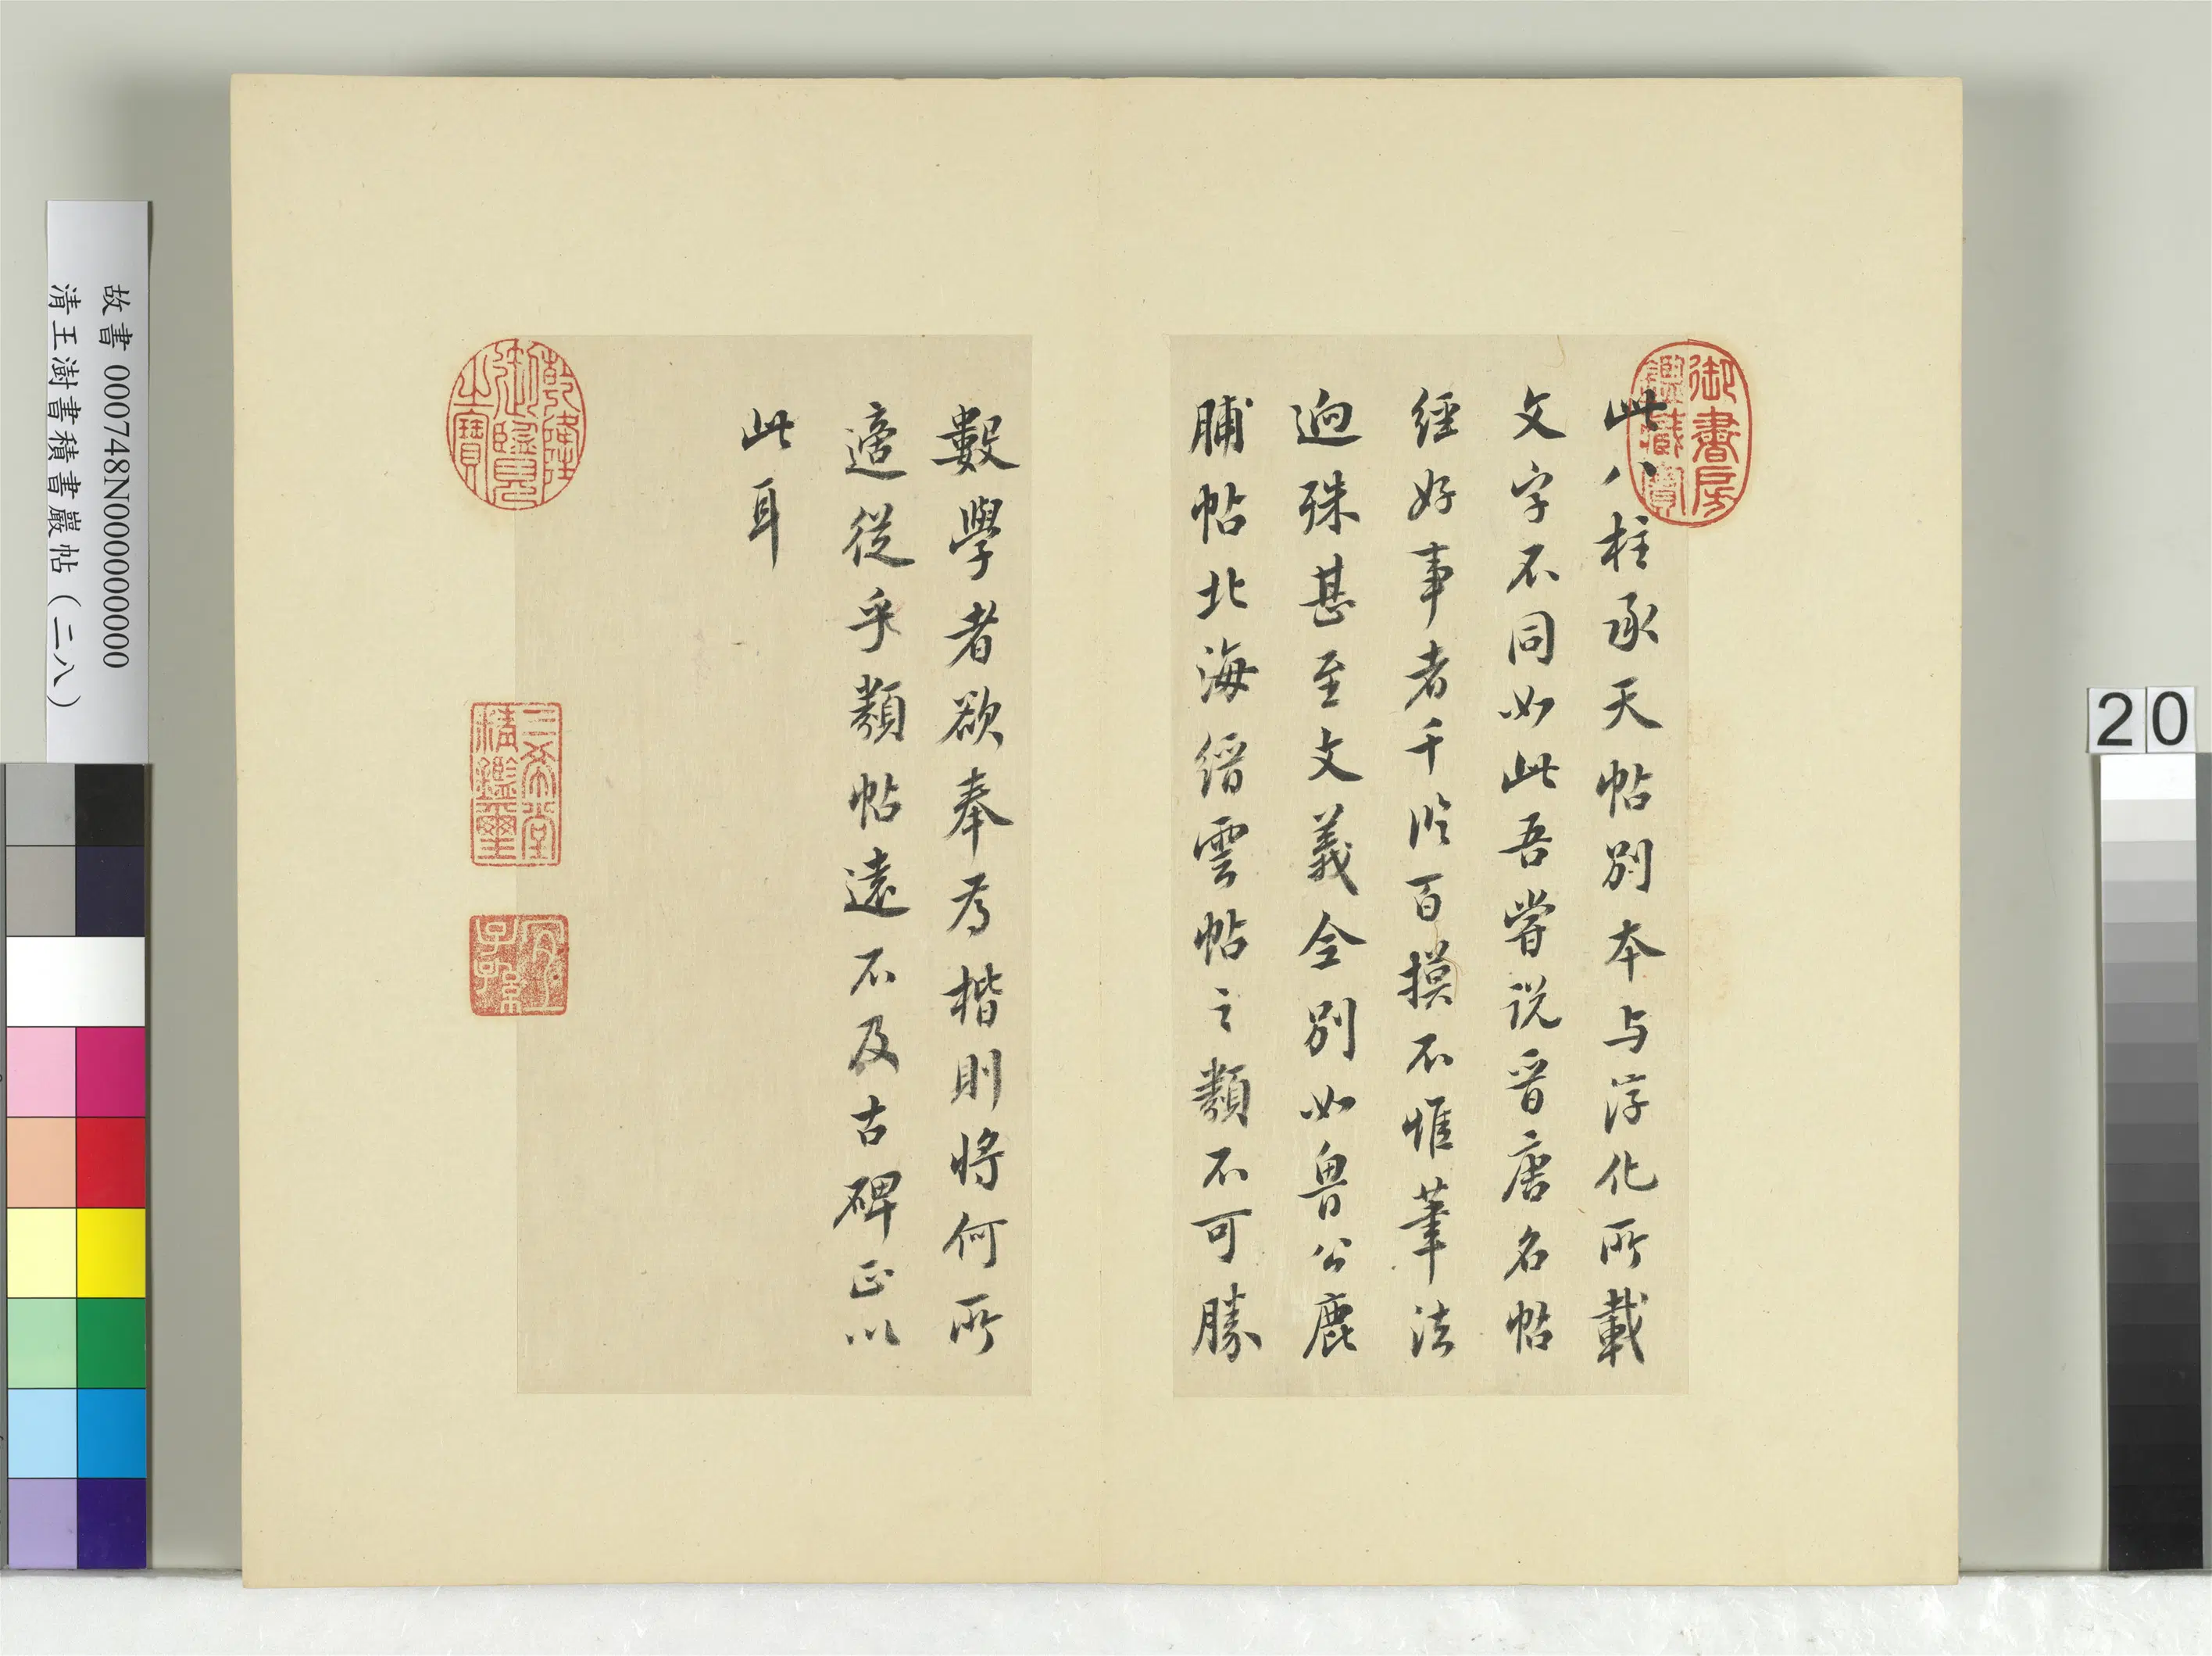 此八柱承天帖別本与淳化所載
文字不同如此吾嘗说晋唐名帖
經好事者千臨百摸不惟筆法
迥殊甚至文義全別如魯公鹿
脯帖北海縉雲帖之類不可勝
數學者欲奉為楷則將何所
適從乎類帖遠不及古碑正以
此耳
御書房鑑藏寶
乾隆御覽之寶
三希堂精鑑璽
宜子孫
故書 000748N000000000
清王澍書積書巖帖（二八）
20